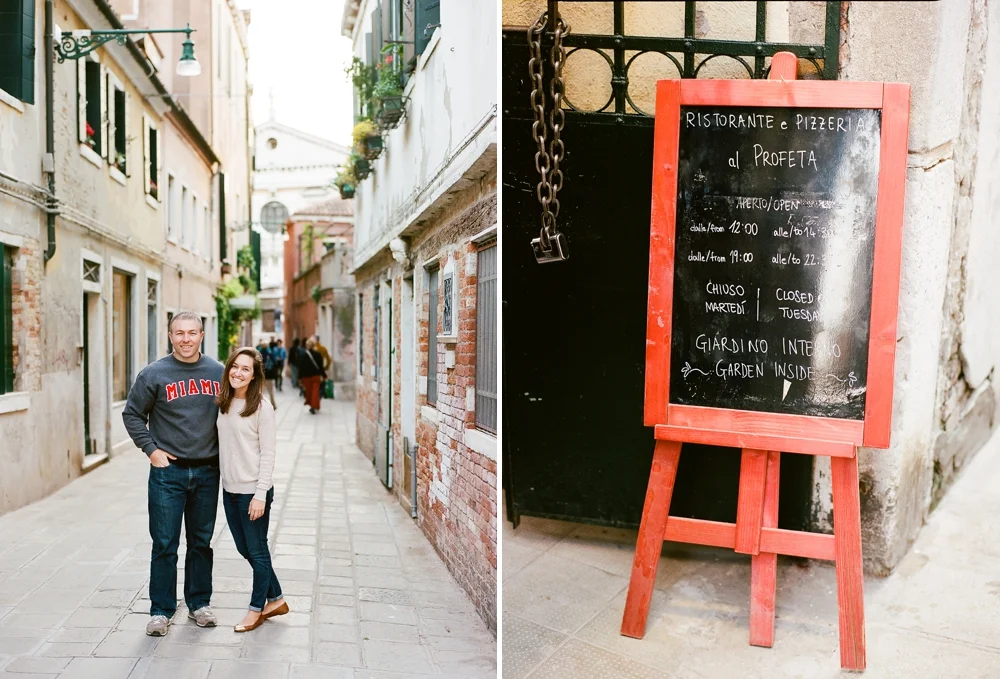 MIAMI
RISTORANTE e PIZZERIA
al PROFETA
APERTO/OPEN
dalle/from 12:00 alle/to 14:3
dalle/from 19:00 alle/to 22:3
CHIUSO MARTEDÍ
CLOSED TUESDAY
GIARDINO INTERNO
GARDEN INSIDE